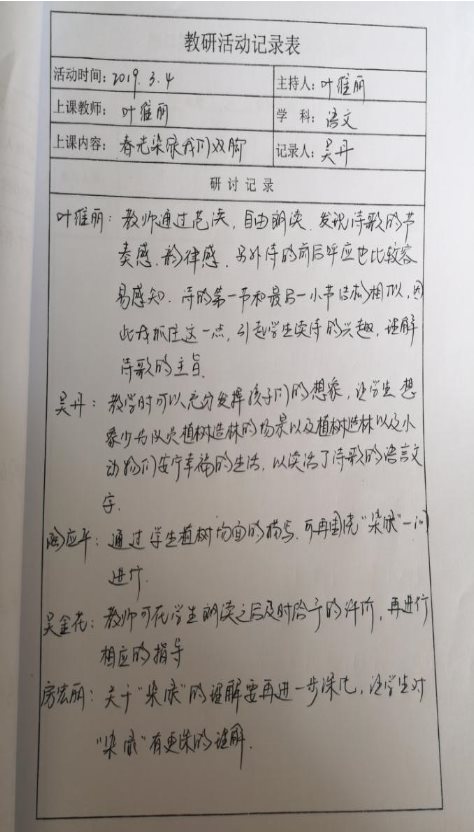 教研活动记录表
活动时间：2019.3.4 主持人：叶维丽
上课教师：叶维丽 学 科：语文
上课内容：春光染绿我们双脚 记录人：吴丹
研讨记录
叶维丽：教师通过范读，自由朗读，发现诗歌的节
奏感、韵律感，另外诗的前后呼应也比较容
易感知，诗的第一节和最后一小节结构相似，因
此我抓住这一点，引起学生读诗的兴趣，理解
诗歌的主旨。
吴丹：教学时可以充分发挥孩子们的想象，让学生想
象少先队员植树造林的场景以及植树造林以及小
动物们安宁幸福的生活，以读活了诗歌的语言文
字。
应平：通过学生植树均面的描写，可再围绕“染绿”一词
进行.
吴金花：教师可在学生朗读之后及时给予的评价，再进行
相应的指导
房宏丽：关于“染绿”的理解要再进一步深化，让学生对
“染绿”有更深的理解.